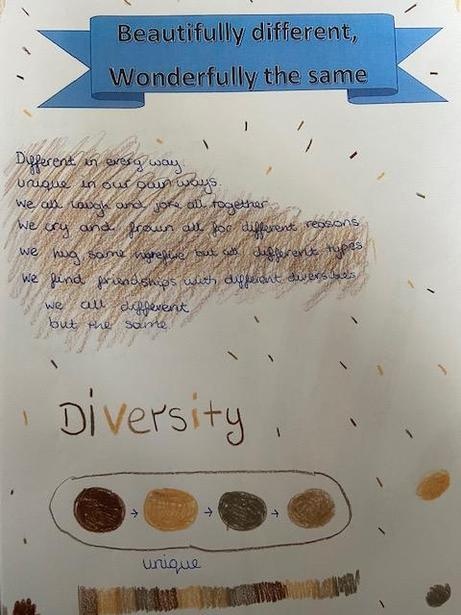 Beautifully different,
Wonderfully the same
Different in every way
unique in our own ways.
we all laugh and joke all together
we cry and frown all for different reasons
we hug same but all different types
we find friendships with different diversities
we all different
but the same
Diversity
unique